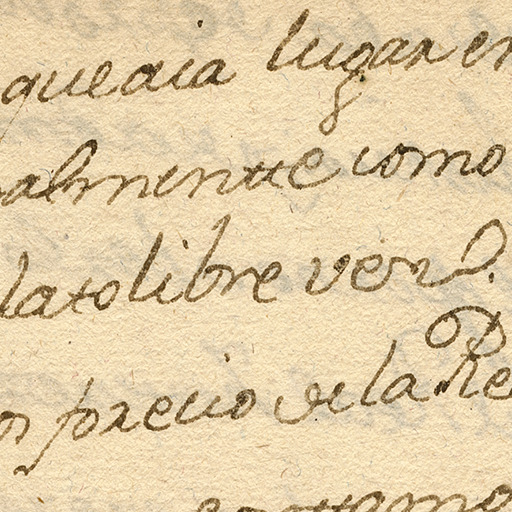 que aia lugar en
almentte como
lato libre verd.
or precio de la Re